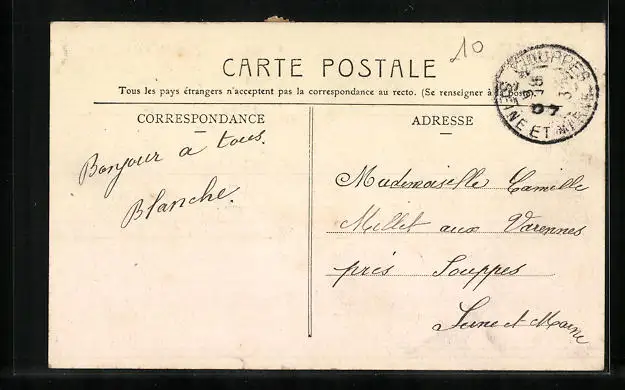 10
CARTE POSTALE
Tous les pays étrangers n'acceptent pas la correspondance au recto. (Se renseigner à la poste
CORRESPONDANCE
ADRESSE
SOUPPES
07
SEINE ET MARNE
Bonjour a tous.
Blanche.
Mademoiselle Camille
Millet aux Varennes
près Souppes
Seine et Marne